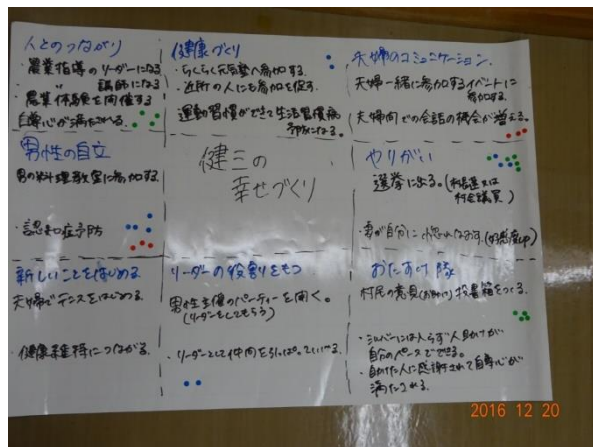 人とのつながり
・農業指導のリーダーになる
・〃 講師になる
・農業体験を開催する
自尊心が満たされる。
健康づくり
・らくらく元気塾へ参加する。
・近所の人にも参加を促す。
運動習慣ができて生活習慣病
予防になる。
夫婦のコミュニケーション
夫婦一緒に参加するイベントに
参加する。
夫婦間での会話の機会が増える。
男性の自立
男の料理教室に参加する。
・認知症予防
健三の
幸せづくり
やりがい
選挙に出る。(村長選又は
村会議員)
・妻が自分に惚れなおす。(好感度up)
新しいことをはじめる
夫婦でテニスをはじめる。
・健康維持につながる。
リーダーの役割をもつ
男性主催のパーティーを開く。
(リーダーをしてもらう)
・リーダーとして仲間を引っぱっていける。
おたすけ隊
村民の意見 投書箱をつくる。
・シルバーには入らず人助けが
自分のペースでできる。
・助けた人に感謝されて自尊心が
満たされる。
2016 12 20